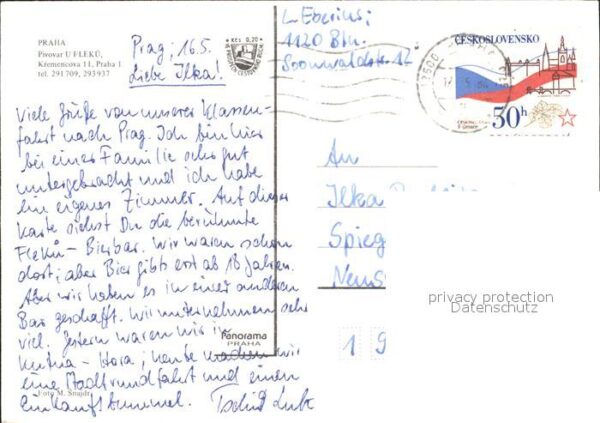 PRAHA
Pivovar U FLEKŮ,
Křemencova 11, Praha 1
tel. 291 709, 293 937
Kčs 0,20
Prag, 16.5.
Liebe Ilka!
Viele Grüße von unserer Klassen-
fahrt nach Prag. Ich bin hier
bei einer Familie sehr gut
untergebracht und ich habe
ein eigenes Zimmer. Auf dieser
Karte siehst Du die berühmte
Flekü-Bierbar. Wir waren schon
dort; aber Bier gibts erst ab 18 Jahren.
Aber wir haben es in einer anderen
Bar geschafft. Wir unternehmen sehr
viel. Gestern waren wir in
Kutna-Hora; heute machen wir
eine Stadtrundfahrt und einen
Einkaufsbummel. Tschüß Lutz
Foto M. Šnajdr
Panorama
PRAHA
L. Eberius;
1120 Bln.
Soonwaldstr. 12
ČESKOSLOVENSKO
50h
An
Ilka
Spieg
Neus
1 9
privacy protection
Datenschutz